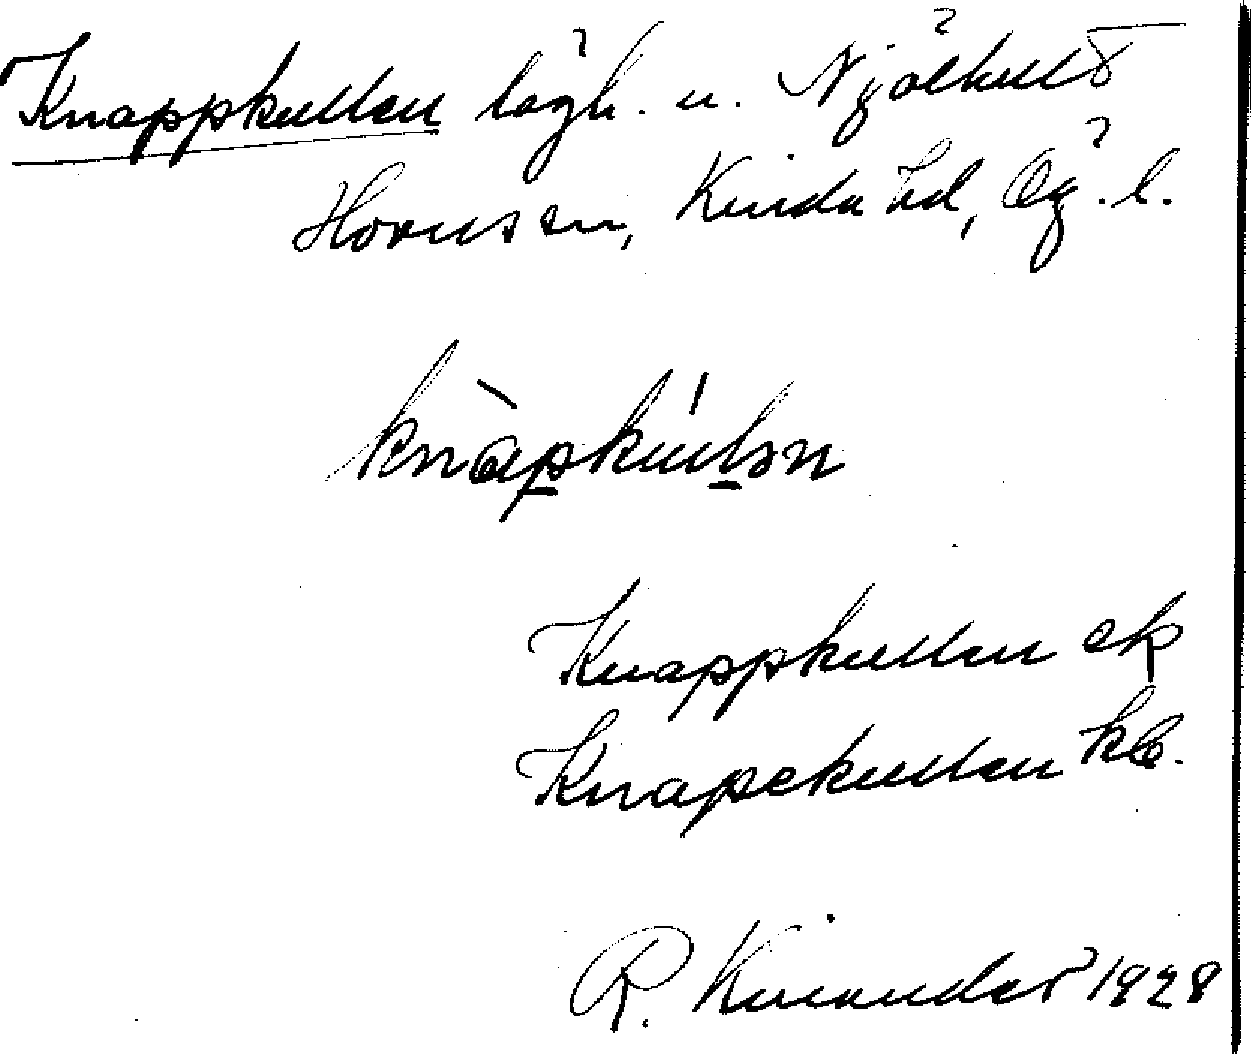 Knappkullen lägh. u. Njälhult
Horn sn, Kinda hd, Ög. l.
knàpkúlən
Knappkullen ek
Knapekullen kb.
R. Kinander 1928